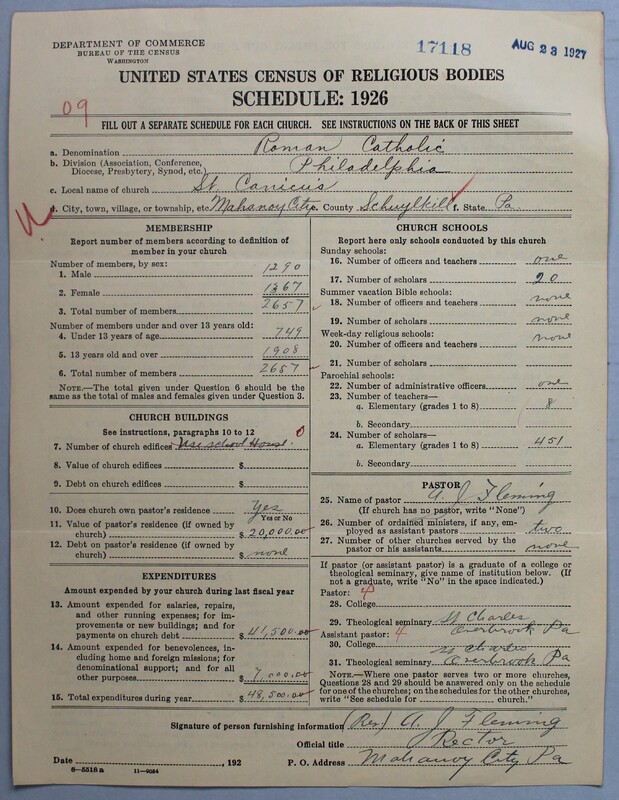 DEPARTMENT OF COMMERCE
BUREAU OF THE CENSUS
WASHINGTON
17118
AUG 23 1927
UNITED STATES CENSUS OF RELIGIOUS BODIES
SCHEDULE: 1926
09
FILL OUT A SEPARATE SCHEDULE FOR EACH CHURCH. SEE INSTRUCTIONS ON THE BACK OF THIS SHEET
a. Denomination Roman Catholic
b. Division (Association, Conference, Diocese, Presbytery, Synod, etc.) Philadelphia
c. Local name of church St. Canicus
d. City, town, village, or township, etc. Mahanoy City e. County Schuylkill f. State Pa.
MEMBERSHIP
Report number of members according to definition of member in your church
Number of members, by sex:
1. Male 1290
2. Female 1367
3. Total number of members 2657
Number of members under and over 13 years old:
4. Under 13 years of age 749
5. 13 years old and over 1908
6. Total number of members 2657
NOTE.—The total given under Question 6 should be the same as the total of males and females given under Question 3.
CHURCH BUILDINGS
See instructions, paragraphs 10 to 12
7. Number of church edifices Use school House. 0
8. Value of church edifices $
9. Debt on church edifices $
10. Does church own pastor's residence Yes
Yes or No
11. Value of pastor's residence (if owned by church) $ 20,000.00
12. Debt on pastor's residence (if owned by church) $ none
EXPENDITURES
Amount expended by your church during last fiscal year
13. Amount expended for salaries, repairs, and other running expenses; for improvements or new buildings; and for payments on church debt $ 41,500.00
14. Amount expended for benevolences, including home and foreign missions; for denominational support; and for all other purposes $ 7,000.00
15. Total expenditures during year $ 48,500.00
CHURCH SCHOOLS
Report here only schools conducted by this church
Sunday schools:
16. Number of officers and teachers one
17. Number of scholars 20
Summer vacation Bible schools:
18. Number of officers and teachers none
19. Number of scholars none
Week-day religious schools:
20. Number of officers and teachers none
21. Number of scholars
Parochial schools:
22. Number of administrative officers one
23. Number of teachers—
a. Elementary (grades 1 to 8) 8
b. Secondary
24. Number of scholars—
a. Elementary (grades 1 to 8) 451
b. Secondary
PASTOR
25. Name of pastor A. J. Fleming
(If church has no pastor, write "None")
26. Number of ordained ministers, if any, employed as assistant pastors two
27. Number of other churches served by the pastor or his assistants none
If pastor (or assistant pastor) is a graduate of a college or theological seminary, give name of institution below. (If not a graduate, write "No" in the space indicated.)
Pastor: 4
28. College
29. Theological seminary St Charles Overbrook Pa
Assistant pastor: 4
30. College
31. Theological seminary St Charles Overbrook Pa
NOTE.—Where one pastor serves two or more churches, Questions 28 and 29 should be answered only on the schedule for one of the churches; on the schedules for the other churches, write "See schedule for church."
Signature of person furnishing information (Rev) A. J. Fleming
Official title Rector
Date , 192 P. O. Address Mahanoy City Pa
8—5518 a 11—9054